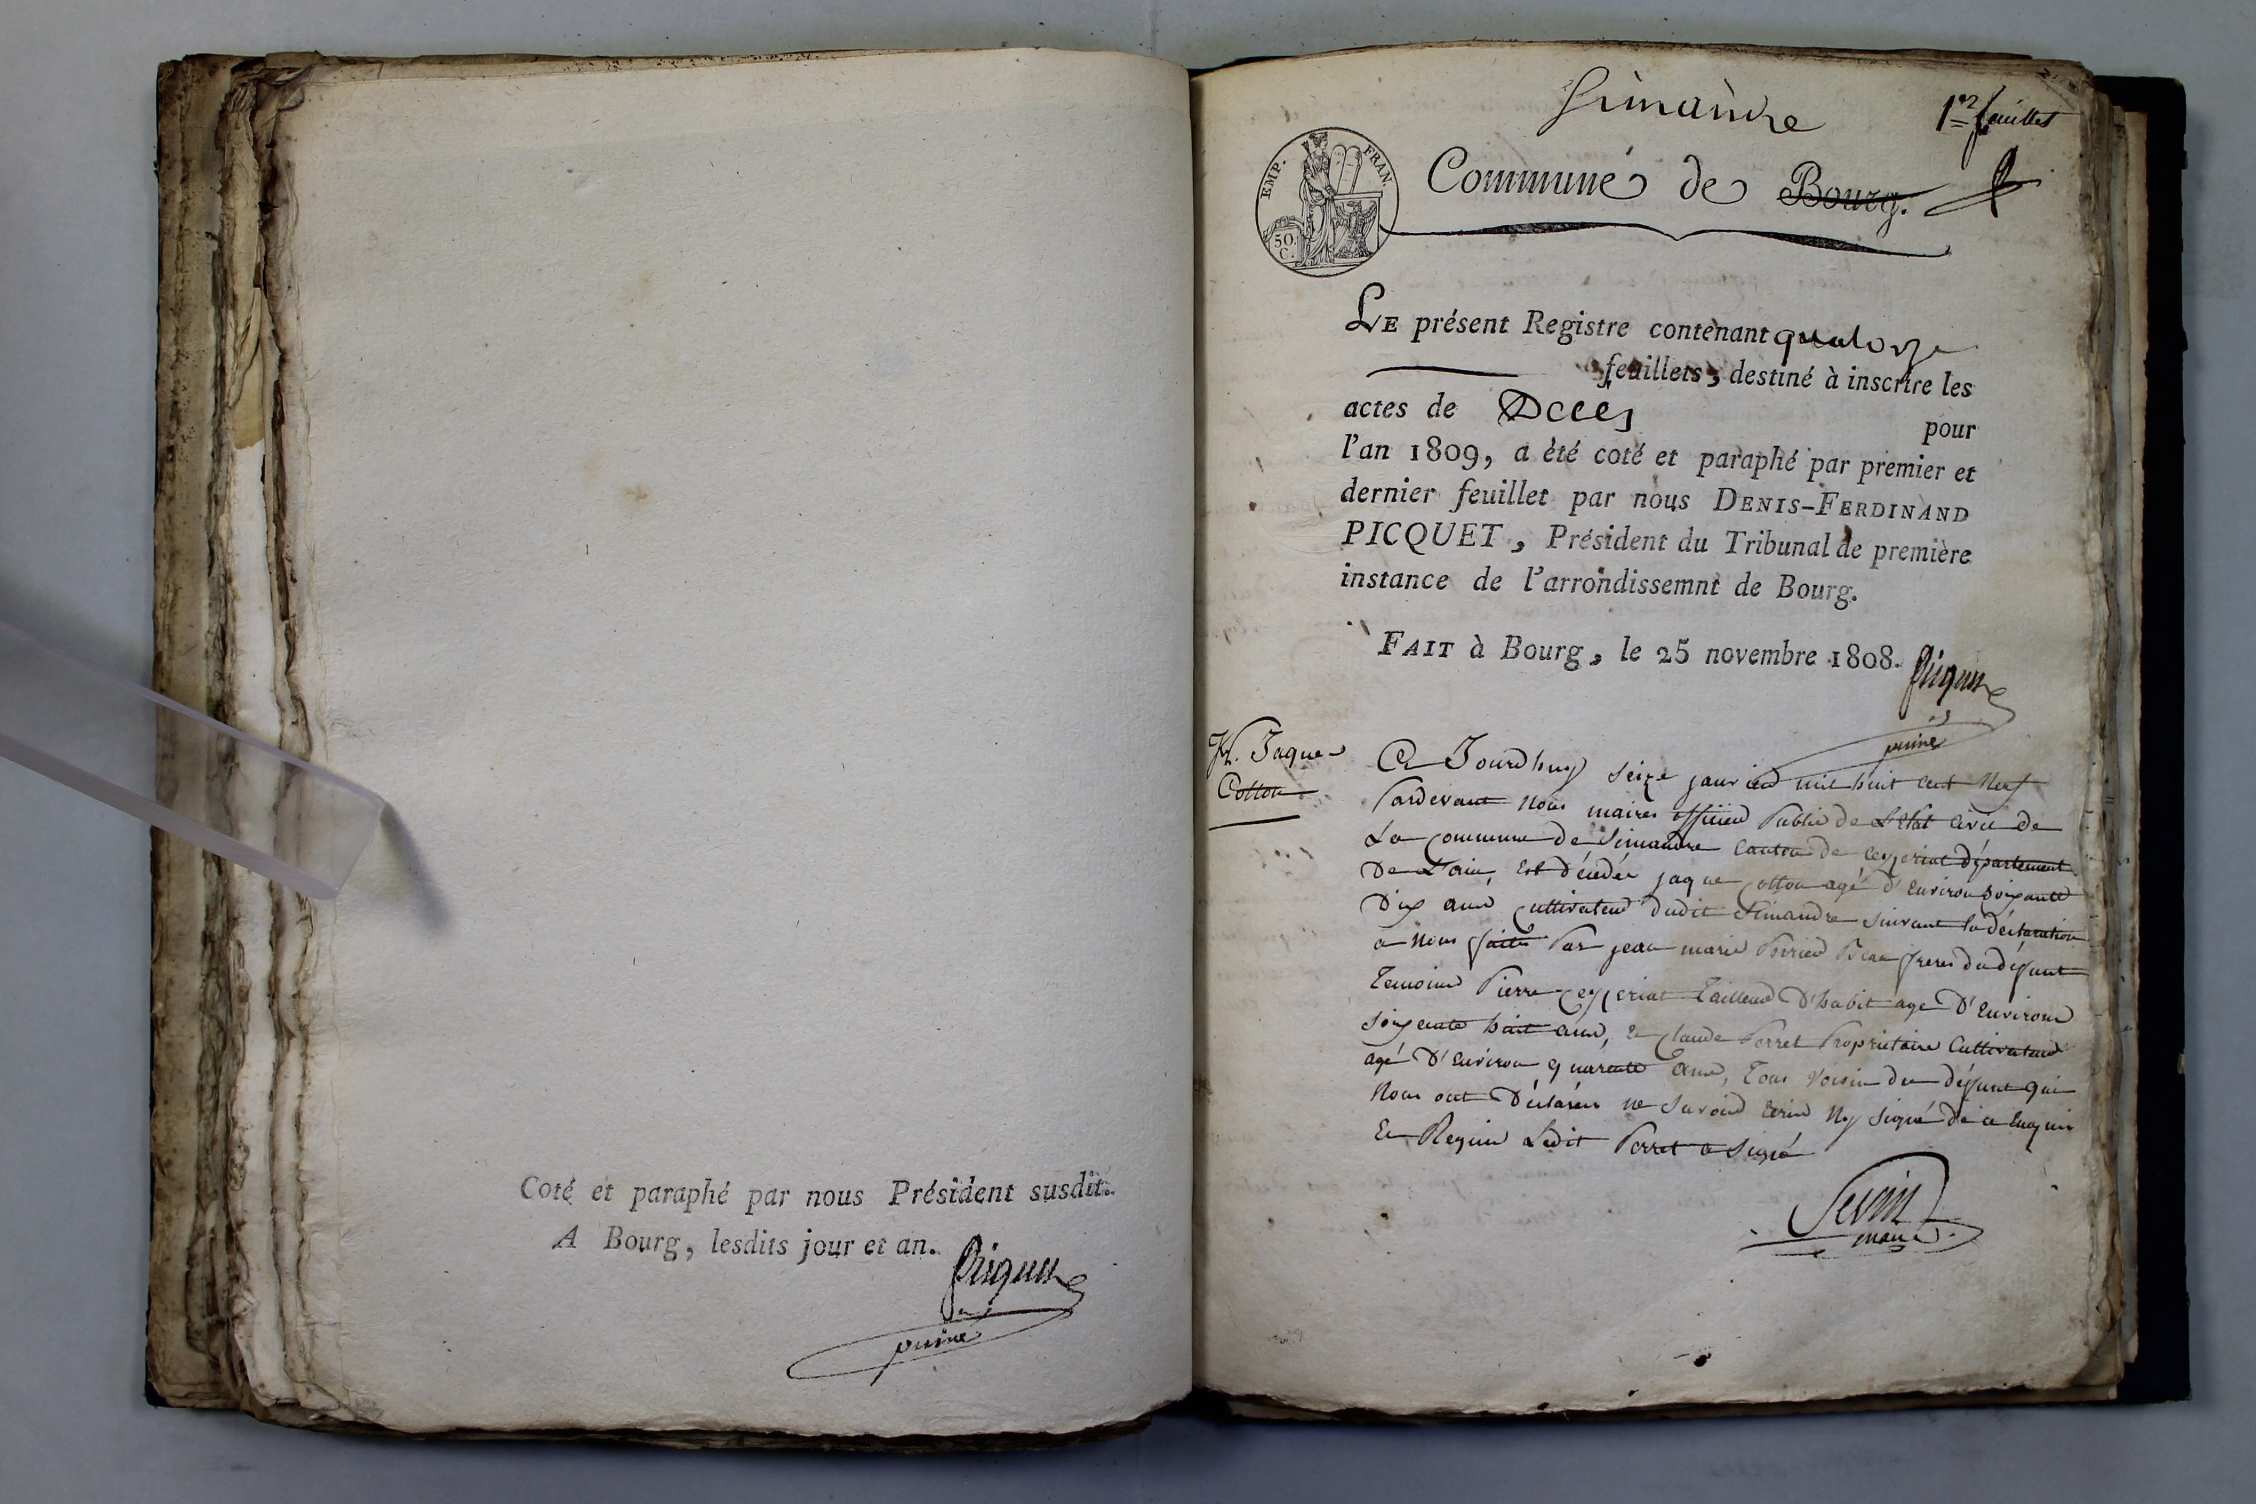 Coté et paraphé par nous Président susdit.
A Bourg, lesdits jour et an.
Simandre
1er feuillet
EMP. FRAN.
50.
C.
Commune de Bourg.
LE présent Registre contenant quatorze
feuillets, destiné à inscrire les
actes de Décès pour
l'an 1809, a été coté et paraphé par premier et
dernier feuillet par nous DENIS-FERDINAND
PICQUET, Président du Tribunal de première
instance de l'arrondissemnt de Bourg.
FAIT à Bourg, le 25 novembre 1808.
Jaque
Cotton
Ce Jourdhuy seize janvier mil huit cent Neuf
Pardevant Nous maire officier Public de L'Etat civil de
La Commune de Simandre Canton de Ceyzeriat département
De L'ain, Est décédé jaque Cotton agé d'Environ soixante
Dix ans Cultivateur dudit Simandre suivant la déclaration
a Nous faitte Par jean marie Poirier Beau frere du défunt
Temoins Pierre Ceyzeriat Tailleur D'habit age D'Environ
soixente huit ans, et Claude Perret Propriétaire Cultivateur
agé D'Environ quarente ans, Tous Voisin du défunt qui
Nous ont Déclarés ne savoir Ecrire Ny Signé de ce Enquis
Et Requis Ledit Perret a Signé
Sevin
maire